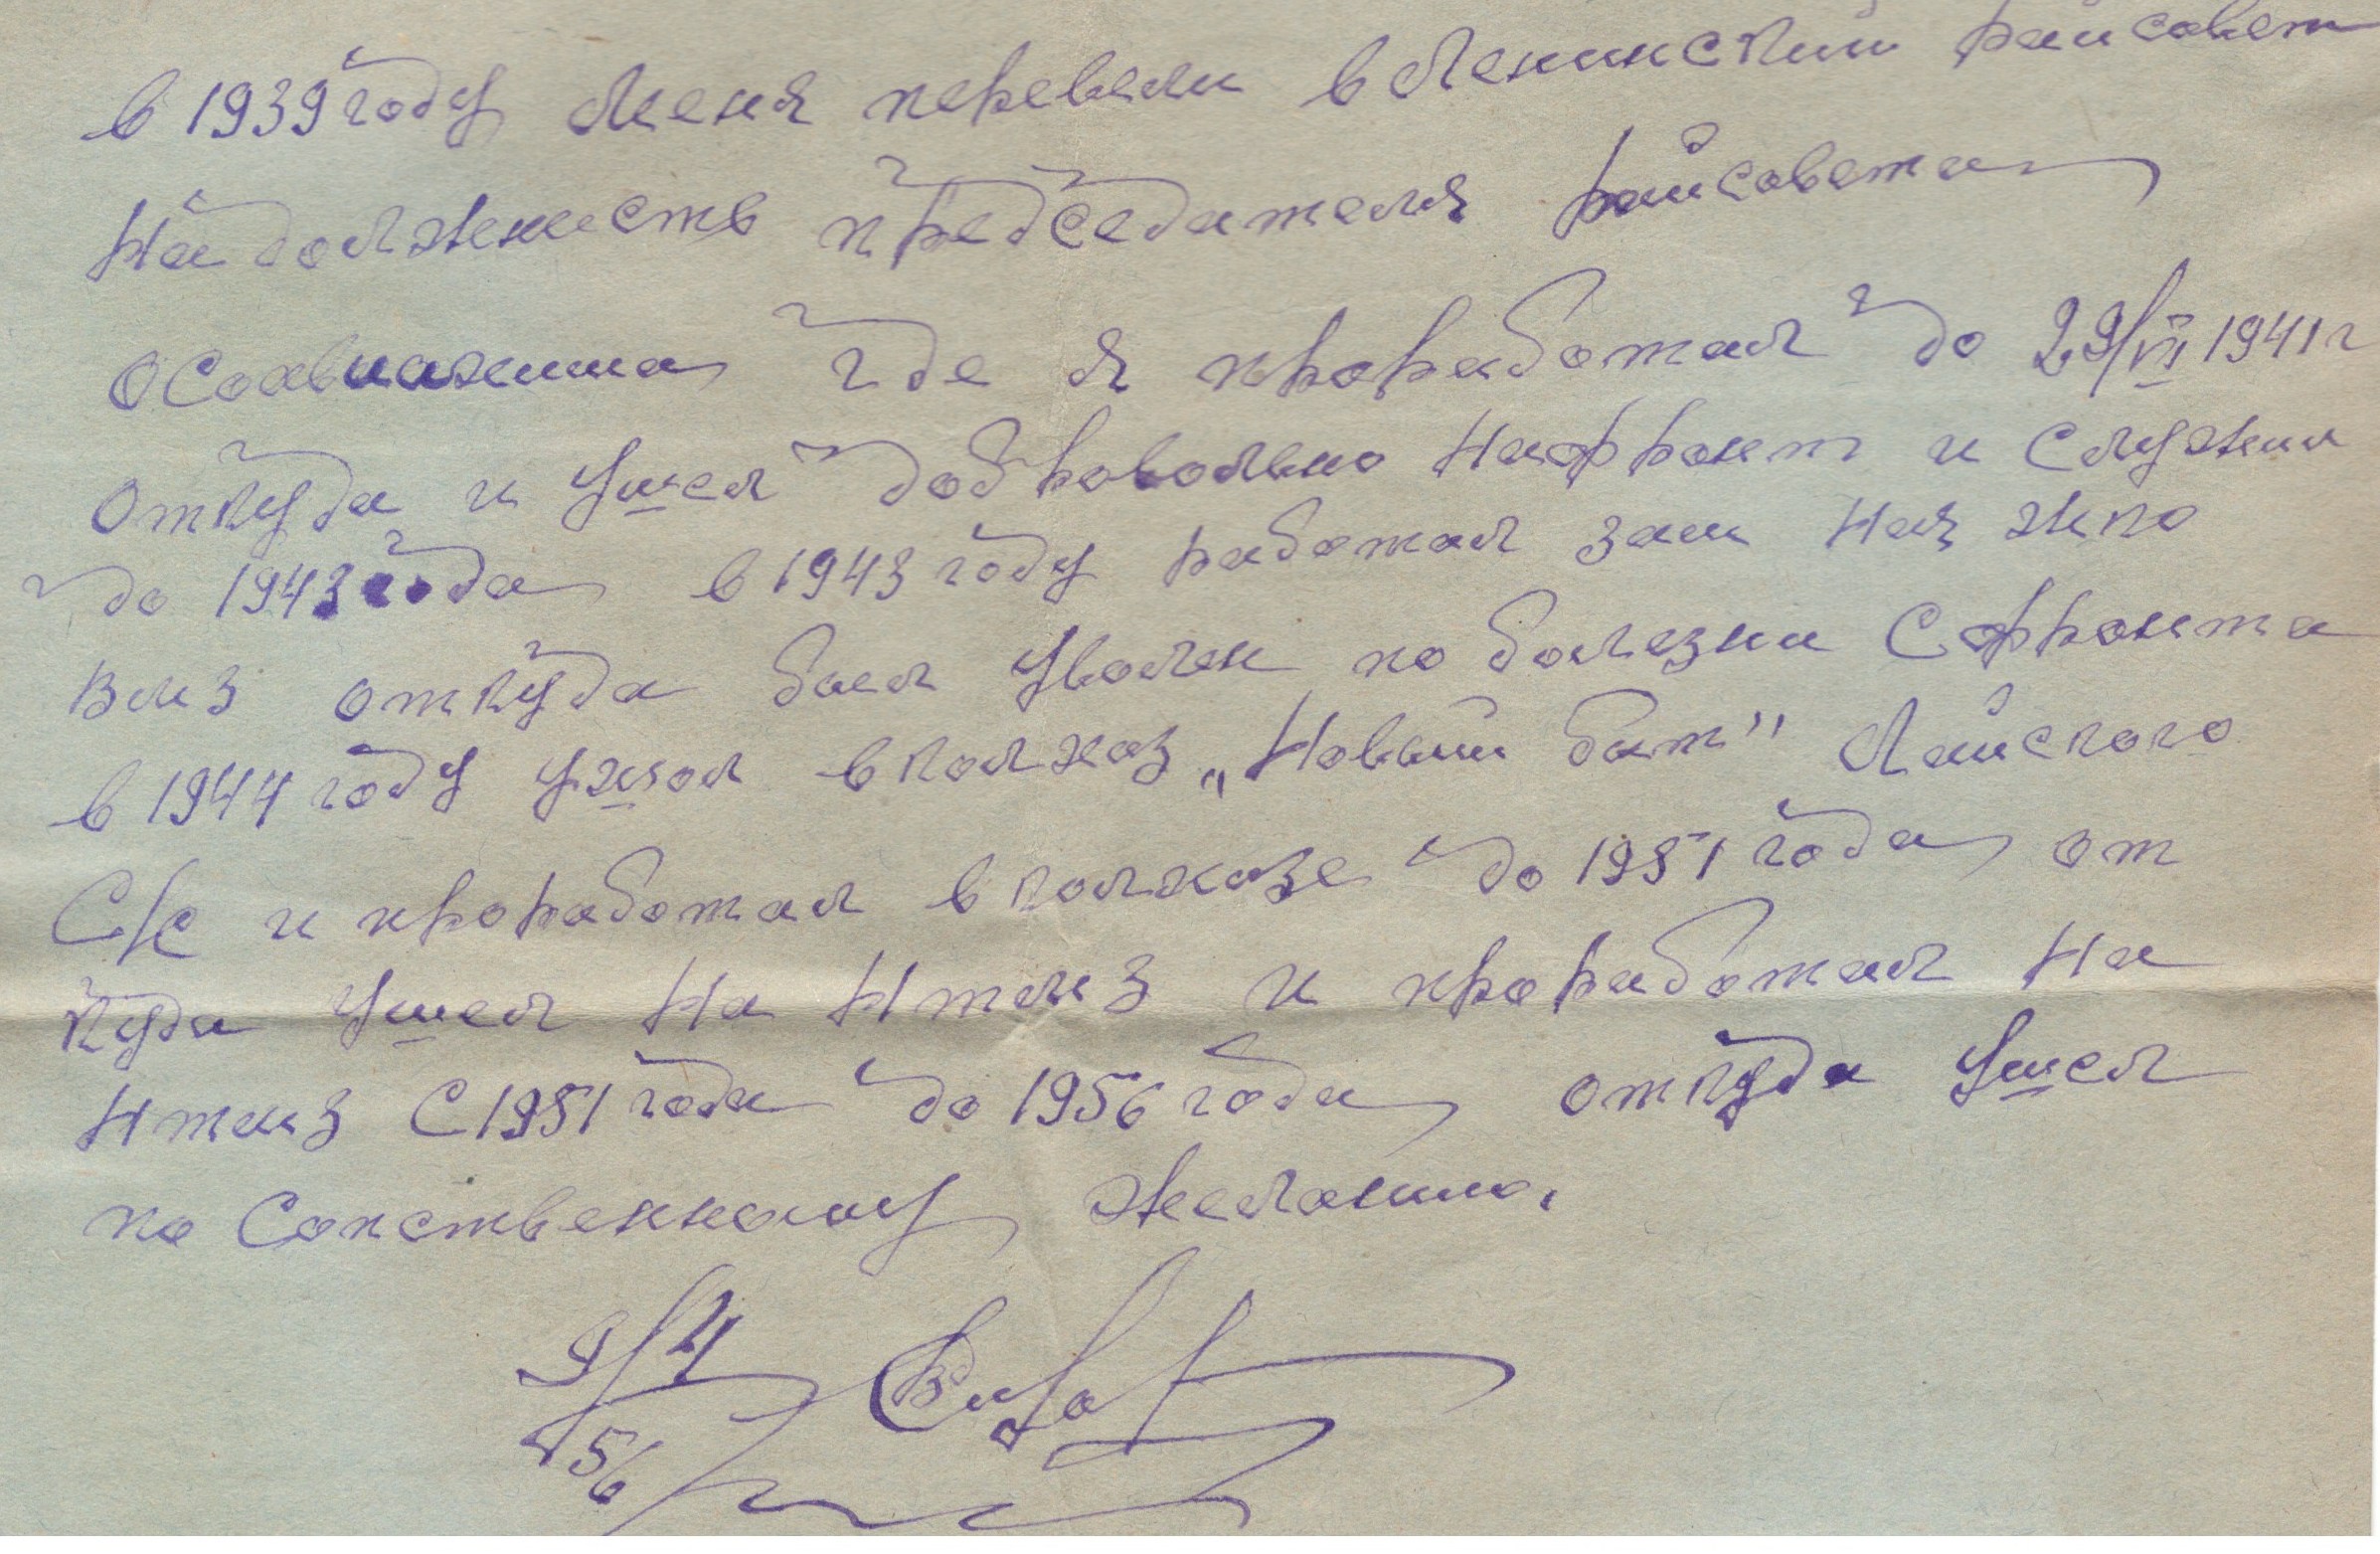 в 1939 году меня перевели в Ленинский райсовет
на должность председателя райсовета
осоавиахима где я проработал до 29/VI 1941 г
откуда и ушел добровольно на фронт и служил
до 1943 года в 1943 году работал зам нач жко
вмз откуда был уволен по болезни с фронта
в 1944 году ушол в колхоз „Новый быт" Лайского
С/с и проработал в колхозе до 1951 года от
куда ушел на Нтмз и проработал на
Нтмз с 1951 года до 1956 года откуда ушел
по сопственному желанию.
9/4
56